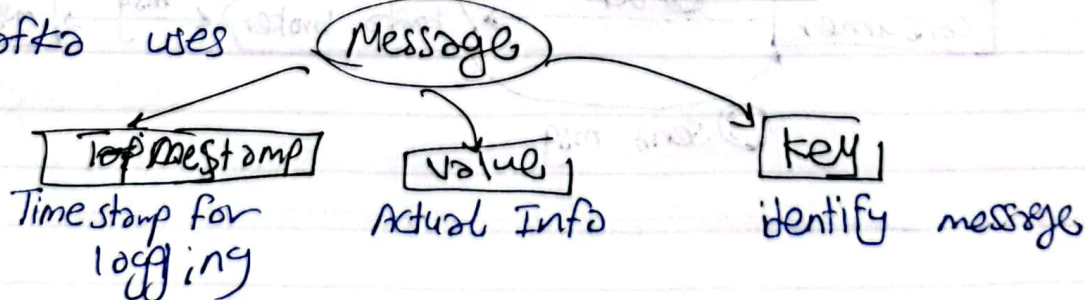 ofka uses Message
Timestamp value key
Timestamp for Actual Info identify message
logging